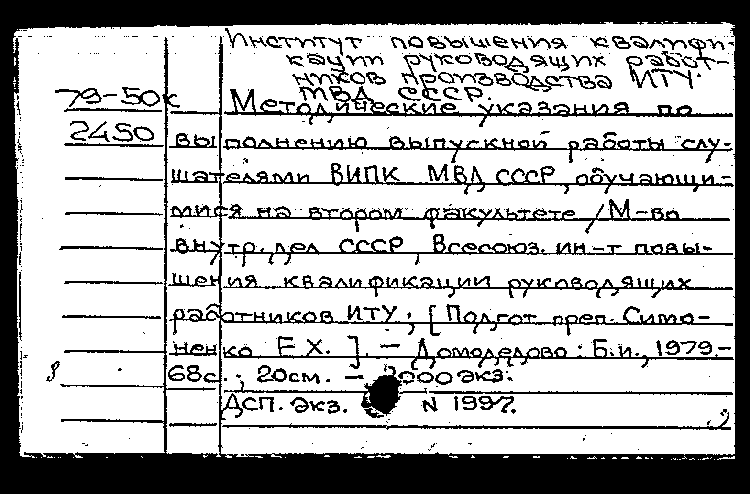 Институт повышения квалифи-
кации руководящих работ-
ников производства ИТУ.
МВД СССР.
79-50к Методические указания по
2450 выполнению выпускной работы слу-
шателями ВИПК МВД СССР, обучающи-
мися на втором факультете / М-во
внутр. дел СССР, Всесоюз. ин-т повы-
шения квалификации руководящих
работников ИТУ; [Подгот. преп. Симо-
ненко Е.Х.]. — Домодедово: Б.и., 1979.-
68с.; 20см. — 3000экз.
ДСП. Экз. N 1997.